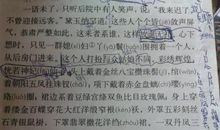 一语未了，只听后院中有人笑声，说："我来迟了，
不曾迎接远客。"黛玉纳罕道：这些人个个皆敛声屏
气，恭肃严整如此，这来者系谁，这样放诞无礼？心下
想时，只见一群媳妇丫鬟围拥着一个人，
从后房门进来。这个人打扮与众姑娘不同，彩绣辉煌，
恍若神妃仙子：头上戴着金丝八宝攒珠髻，绾
着朝阳五凤挂珠钗，项下戴着赤金盘螭璎珞
圈，裙边系着豆绿宫绦双鱼比目玫瑰佩，身上穿着
缕金百蝶穿花大红洋缎窄裉袄，外罩五彩刻丝
石青银鼠褂，下罩翡翠撒花洋绉裙。一双丹凤三